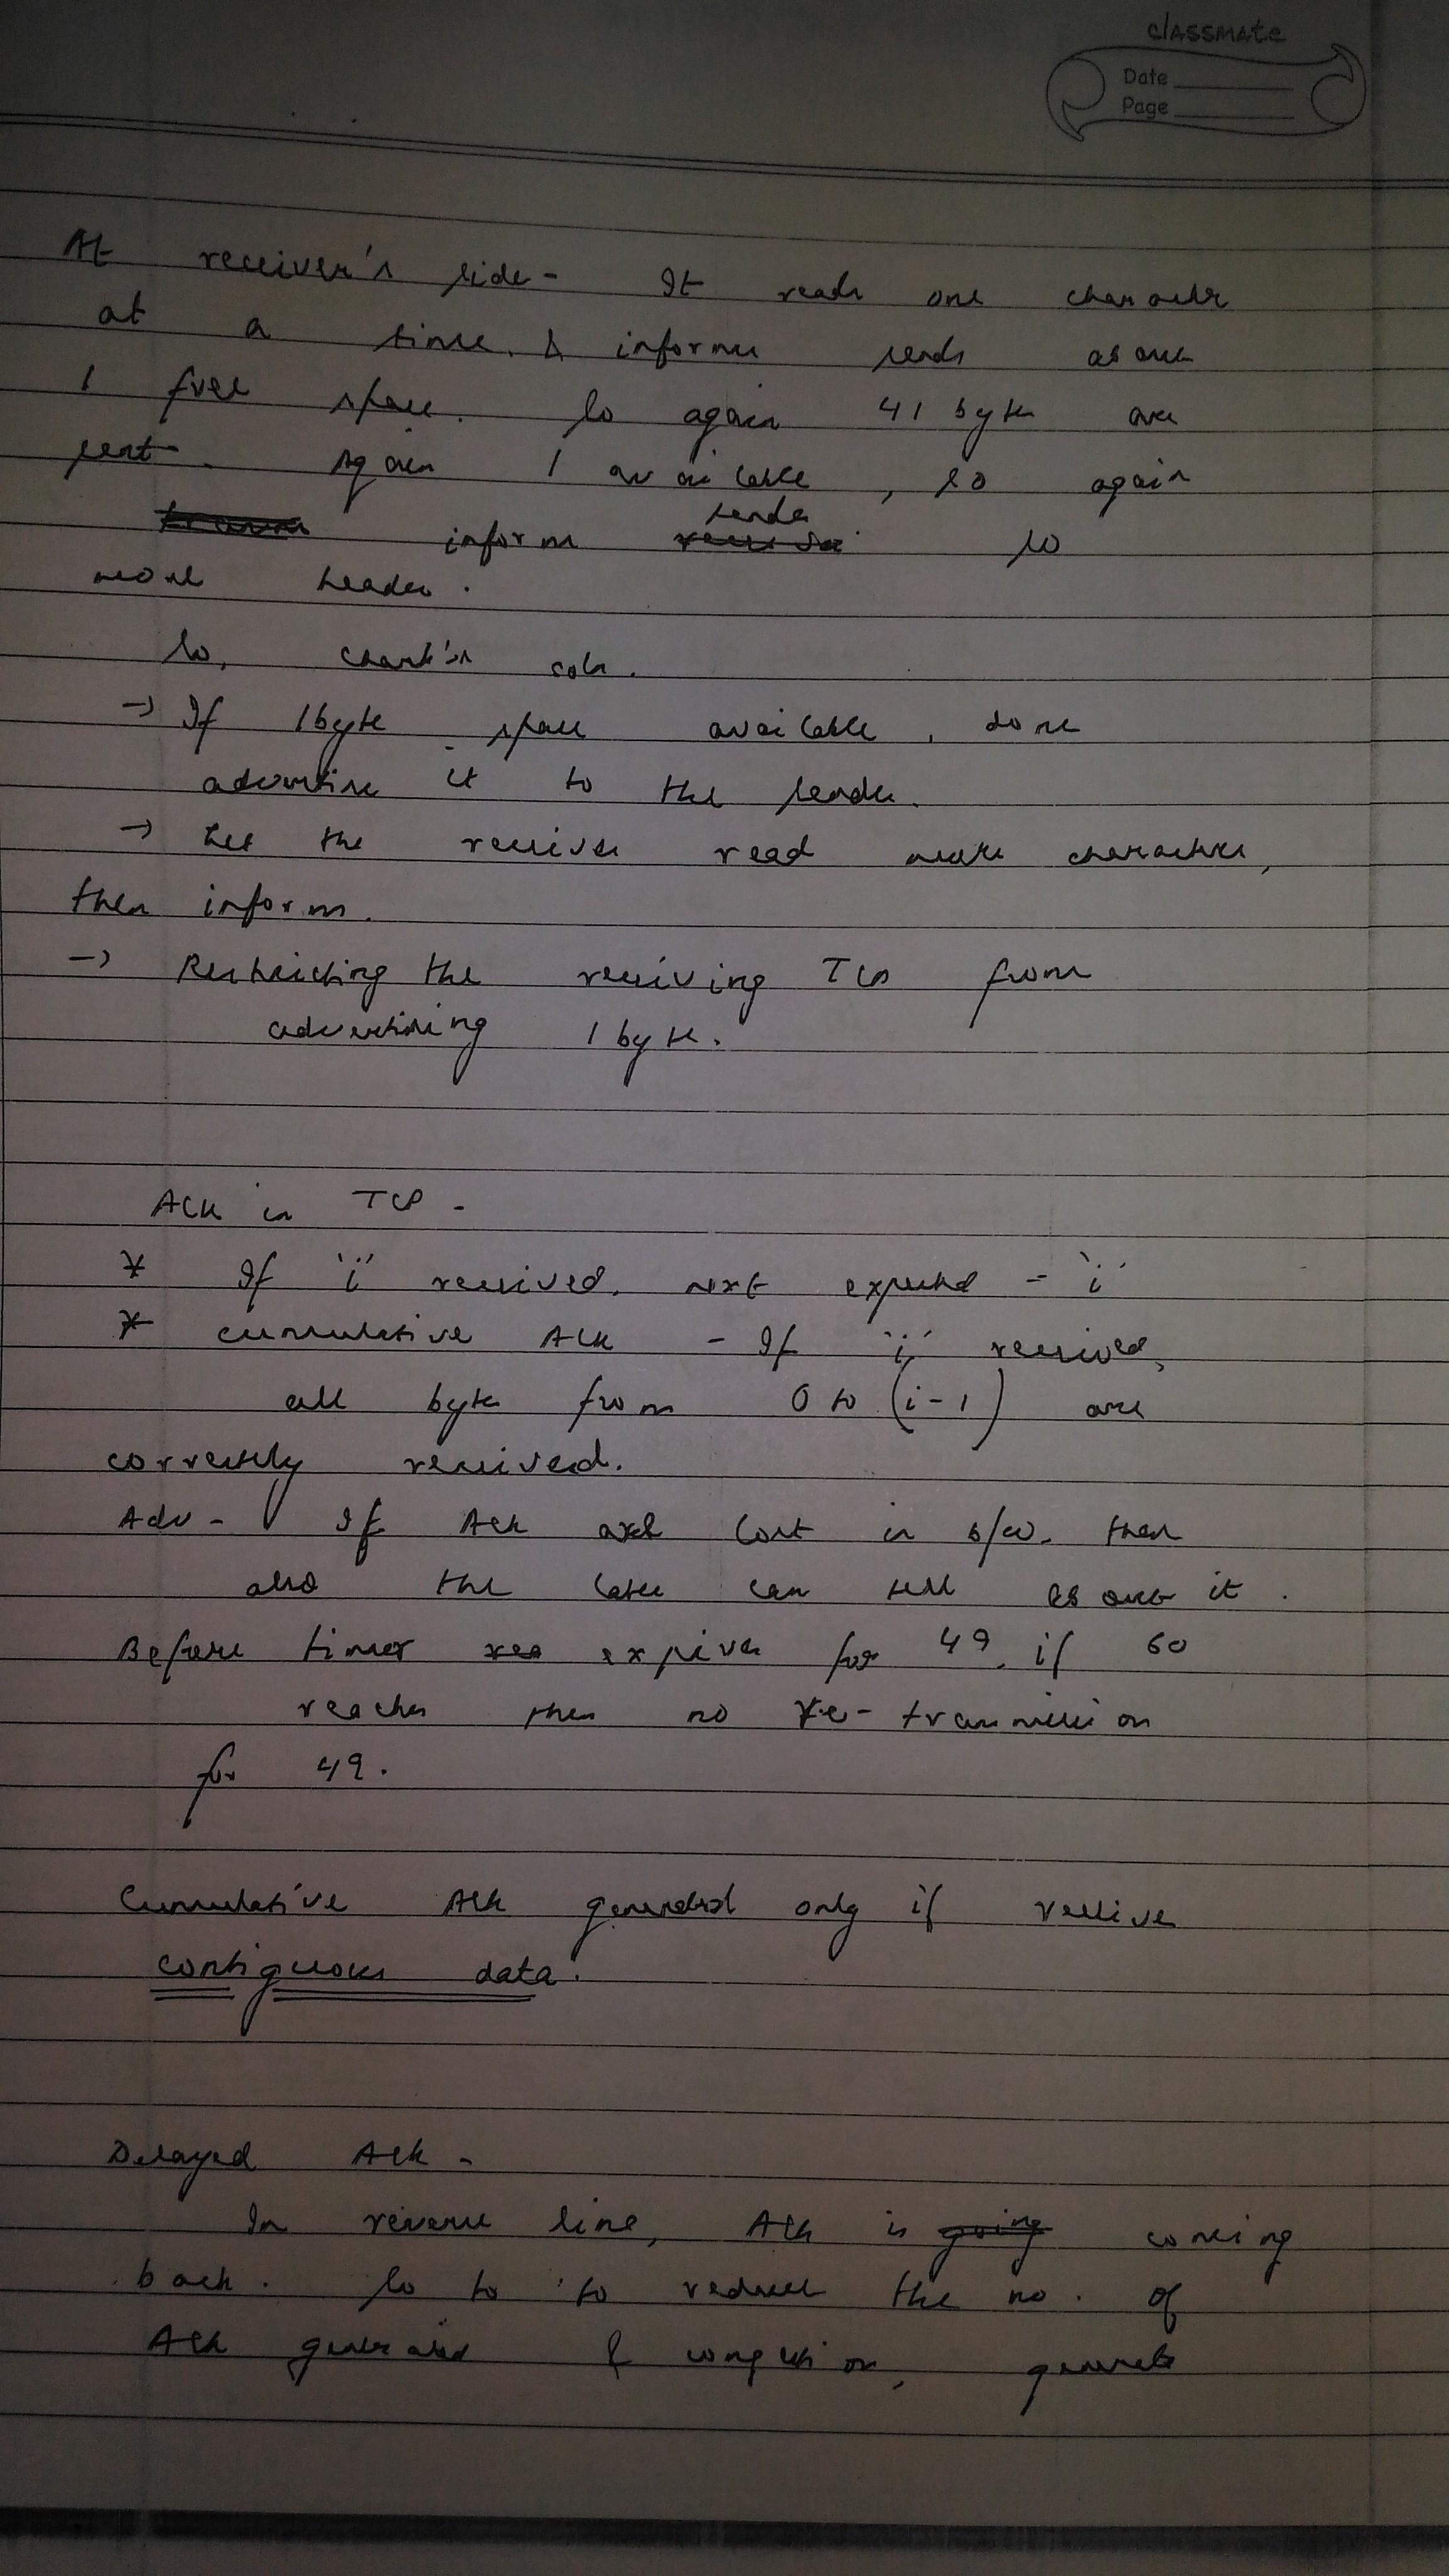 classmate
Date
Page
At receiver's side - It reads one character
at a time. & informs sender about
1 free space. So again 41 byte are
sent. Again 1 available, so again
inform sender so
more header.
So, Clark's soln.
→ If 1 byte space available, dont
advertise it to the sender.
→ Let the receiver read more characters,
then inform.
→ Restricting the receiving TCP from
advertising 1 byte.
ACK in TCP -
* If 'i' received, next expected - 'i'
* cumulative ACK - If 'i' received,
all bytes from 0 to (i-1) are
correctly received.
Adv - If Ack lost in b/w. then
also the later can tell about it.
Before timer expires for 49, if 60
reaches then no re-transmission
for 49.
Cumulative Ack generated only if receive
contiguous data.
Delayed Ack -
In reverse line, Ack is going coming
back. So to to reduce the no. of
Ack generated & congestion, generate